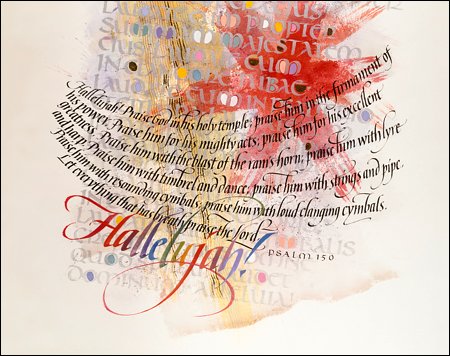 EIUS MAJESTATEM
Hallelujah! Praise God in his holy temple; praise him in the firmament of
his power. Praise him for his mighty acts; praise him for his excellent
greatness. Praise him with the blast of the ram's horn; praise him with lyre
and harp. Praise him with timbrel and dance; praise him with strings and pipe.
Praise him with resounding cymbals; praise him with loud clanging cymbals.
Let everything that has breath praise the Lord.
Hallelujah!
PSALM 150